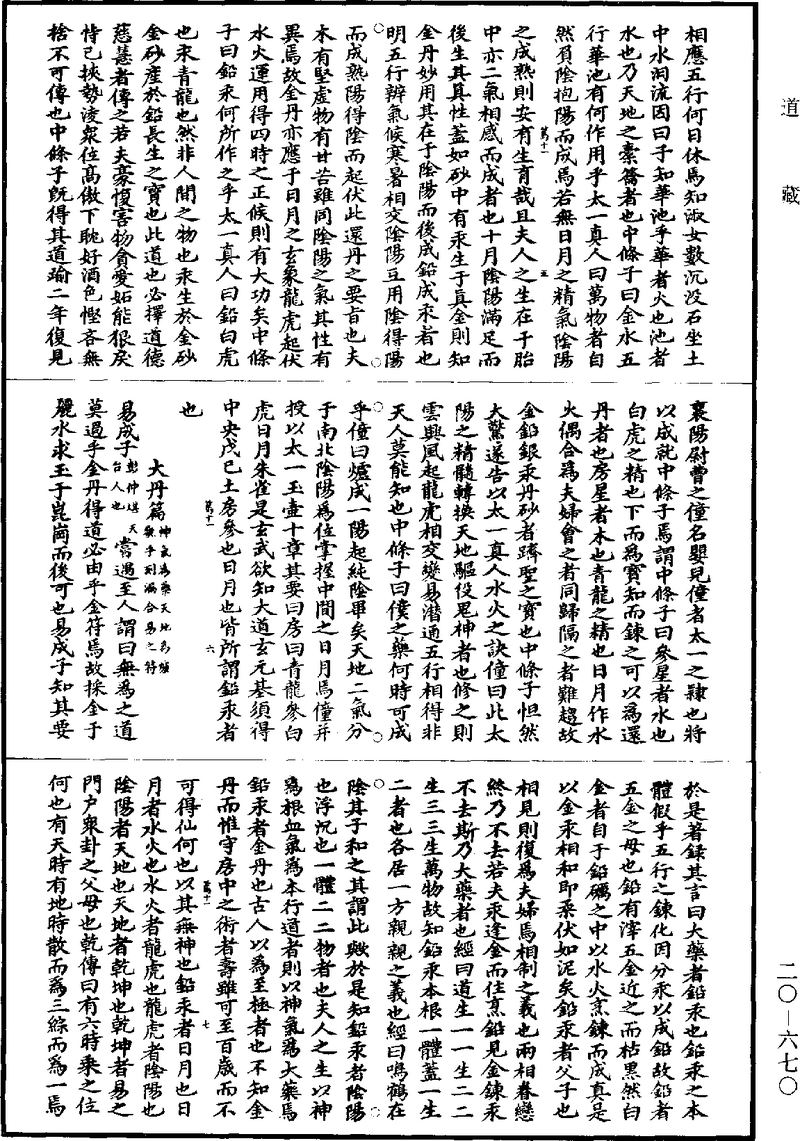 道藏
相應五行何日休焉知淑女數沉没石坐土
中水洞流因曰子知華池乎華者火也池者
水也乃天地之橐籥者也中條子曰金水五
行華池有何作用乎太一真人曰萬物者自
然負陰抱陽而成焉若無日月之精氣陰陽
之成熟則安有生育哉且夫人之生在于胎
中亦二氣相感而成者也十月陰陽滿足而
後生其具性蓋如砂中有汞生于真金則知
金丹妙用其在于陰陽而後成鉛成汞者也
明五行辨氣候寒暑相交陰陽互用陰得陽
而成熟陽得陰而起伏此還丹之要旨也夫
木有堅虛物有甘苦雖同陰陽之氣其性有
異焉故金丹亦應于日月之玄象龍虎起伏
水火運用得四時之正候則有大功矣中條
子曰鉛汞何所作之乎太一真人曰鉛白虎
也汞青龍也然非人間之物也汞生於金砂
金砂產於鉛長生之寶也此道也必擇道德
慈慧者傳之若夫豪愎害物貪愛妬能狠戾
恃己挾勢淩衆位高傲下耽好酒色慳吝無
捨不可傳也中條子既得其道瑜二年復見
襄陽尉曹之僮名嬰兒僮者太一之隸也將
以成就中條子焉謂中條子曰參星者水也
白虎之精也下而為寶知而鍊之可以為還
丹者也房星者木也青龍之精也日月作水
火偶合為夫婦會之者同歸隔之者難趨故
金鉛銀汞丹砂者躋聖之寶也中條子怛然
大驚遂告以太一真人水火之訣僮曰此太
陽之精髓轉換天地驅役鬼神者也修之則
雲興風起龍虎相交變易潛通五行相得非
天人莫能知也中條子曰僕之藥何時可成
乎僮曰爐成一陽起純陰畢矣天地二氣分
于南北陰陽為位掌握中間之日月焉僮并
授以太一玉壺十章其要曰房曰青龍參白
虎日月朱雀是玄武欲知大道玄元基須得
中央戊己土房參也日月也皆所謂鉛汞者
也
大丹篇
易成子 嘗遇至人謂曰無為之道
莫過乎金丹得道必由乎金符焉故採金于
麗水求玉于崑崗而後可也易成子知其要
於是著録其言曰大藥者鉛汞也鉛汞之本
體假乎五行之鍊化因分汞以成鉛故鉛者
五金之母也鉛有滓五金近之而枯黑然白
金者自于鉛礦之中以水火烹鍊而成真是
以金汞相和即柔伏如泥矣鉛汞者父子也
相見則復為夫婦焉相制之義也兩相眷戀
終乃不去若夫汞逢金而住烹鉛見金鍊汞
不去斯乃大藥者也經曰道生一一生二二
生三三生萬物故知鉛汞本根一體蓋一生
二者也各居一方親親之義也經曰鳴鶴在
陰其子和之其謂此歟於是知鉛汞者陰陽
也浮沉也一體二二物者也夫人之生以神
為根血氣為本行道者則以神氣為大藥焉
鉛汞者金丹也古人以為至極者也不知金
丹而惟守房中之術者壽雖可至百歲而不
可得仙何也以其無神也鉛汞者日月也日
月者水火也水火者龍虎也龍虎者陰陽也
陰陽者天地也天地者乾坤也乾坤者易之
門户衆卦之父母也乾傳曰有六時乘之位
何也有天時有地時散而為三綜而為一焉
二〇-六七〇